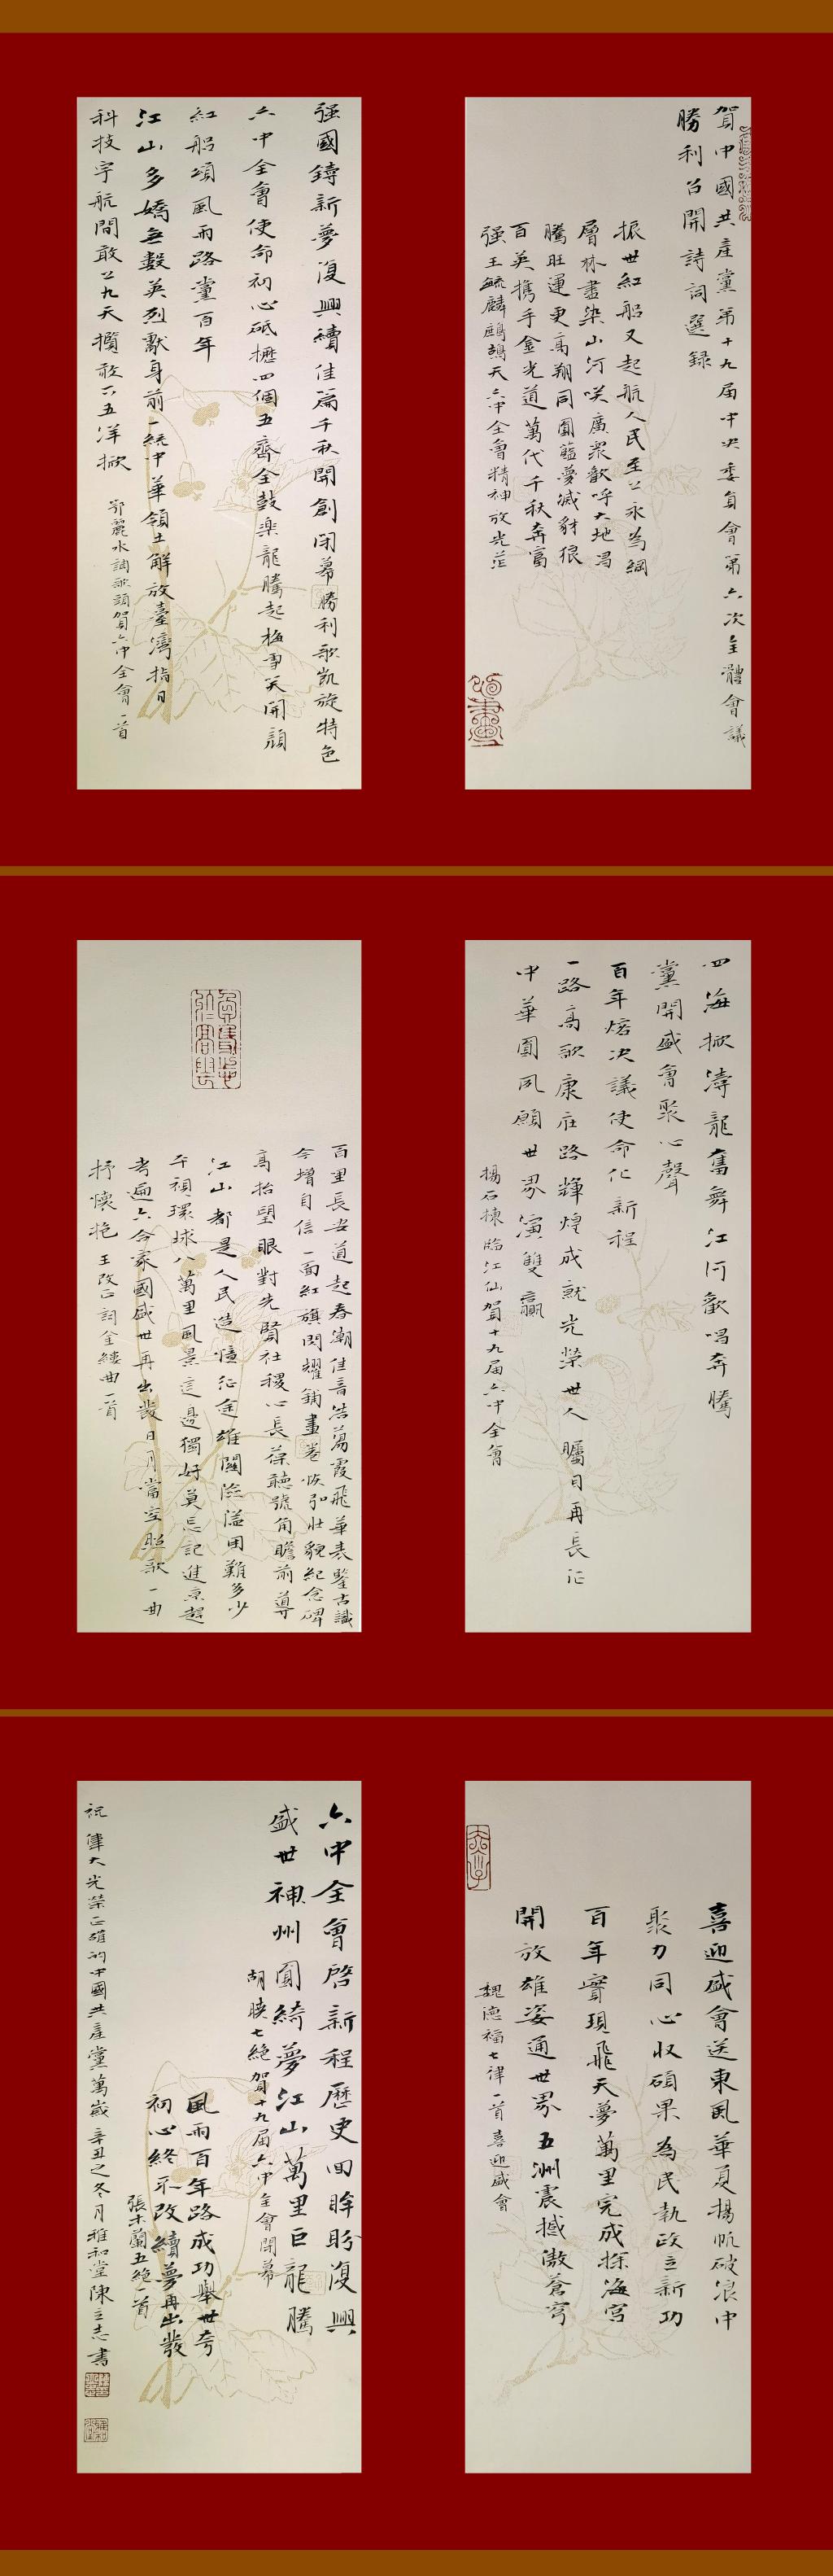 賀中國共産黨第十九届中央委員會第六次全體會議
勝利召開詩詞選録
振世紅船又起航人民至上永為綱
層林盡染山河咲廣衆歡呼大地唱
騰旺運更高翔同圓藍夢滅豺狼
百英携手金光道萬代千秋奔富
强王毓麟鷓鴣天六中全會精神放光茫
强國鑄新夢復興續佳篇千秋開創閉幕勝利歌凱旋特色
六中全會使命初心砥礪四個五齊全鼓樂龍騰起梅雪笑開顔
紅船頌風雨路黨百年
江山多嬌無數英烈獻身前一統中華領土解放臺灣指日
科技宇航間敢上九天攬敢下五洋掀
鄂麗水調歌頭賀六中全會一首
四海掀濤龍奮舞江河歡唱奔騰
黨開盛會聚心聲
百年熔决議使命化新程
一路高歌康莊路輝煌成就光榮世人矚目再長征
中華圓夙願世界演雙贏
楊石楝臨江仙賀十九届六中全會
百里長安道起春潮佳音浩蕩霞飛華表鑒古識
今增自信一面紅旗閃耀鋪畫卷恢弘壯貌紀念碑
高抬望眼對先賢社稷心長葆聽號角瞻前導
江山都是人民造憶征途雄關險溢困難多少
平視環球八萬里風景這邊獨好莫忘記進京趕
考遍六合家國盛世再出發日月當空照歌一曲
抒懷抱
王改正詞金縷曲一首
喜迎盛會送東風華夏揚帆破浪中
聚力同心收碩果為民執政立新功
百年實現飛天夢萬里完成探海宫
開放雄姿通世界五洲震撼傲蒼穹
魏德福七律一首喜迎盛會
六中全會啓新程歷史回眸盼復興
盛世神州圓綺夢江山萬里巨龍騰
胡暎七絶賀十九届六中全會閉幕
風雨百年路成功舉世夸
初心終不改續夢再出發
張木蘭五絶一首
祝偉大光榮正確的中國共産黨萬歲辛丑之冬月雅和堂陳立志書